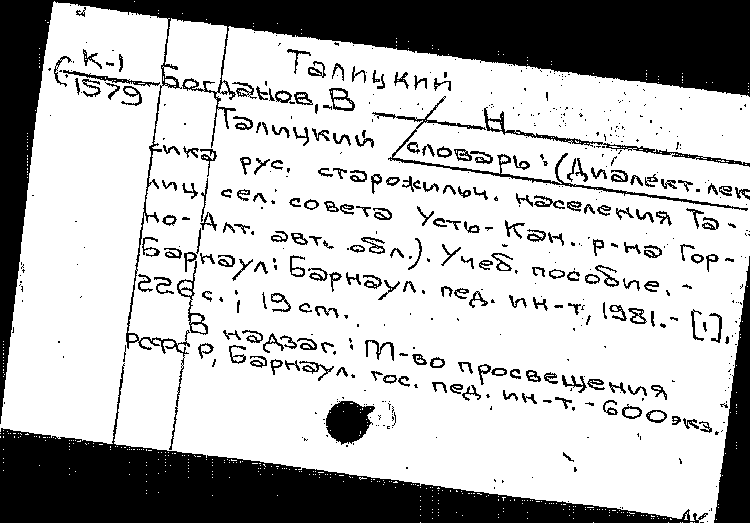 Талицкий
К-1
1579
Богданов, В Н
Талицкий словарь: (Диалект. лек
сика рус. старожильч. населения Та-
лиц. сел. совета Усть-Кан. р-на Гор-
но-Алт. авт. обл.). Учеб. пособие. -
Барнаул: Барнаул. пед. ин-т, 1981. - [1],
226 с.; 19 см.
В надзаг.: М-во просвещения
РСФСР, Барнаул. гос. пед. ин-т. - 600 экз.